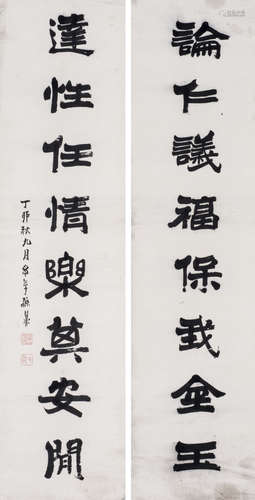 論仁議福保我金玉
達性任情樂其安閒
丁卯秋九月